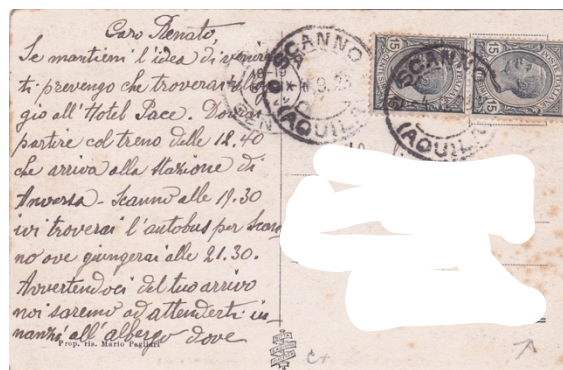 Caro Renato,
Se mantieni l'idea di venire
ti prevengo che troverai
gio all'Hotel Pace.
partire col treno delle 18.40
che arriva alla stazione di
Anversa - Scanno alle 19.30
ivi troverai l'autobus per Scan
no ove giungerai alle 21.30.
Avvertendoci del tuo arrivo
noi saremo ad attenderti in-
nanzi all'albergo dove
Prop. ris. Mario Pagliari
SCANNO
(AQUILA)
SCANNO
(AQUILA)
15
15
15